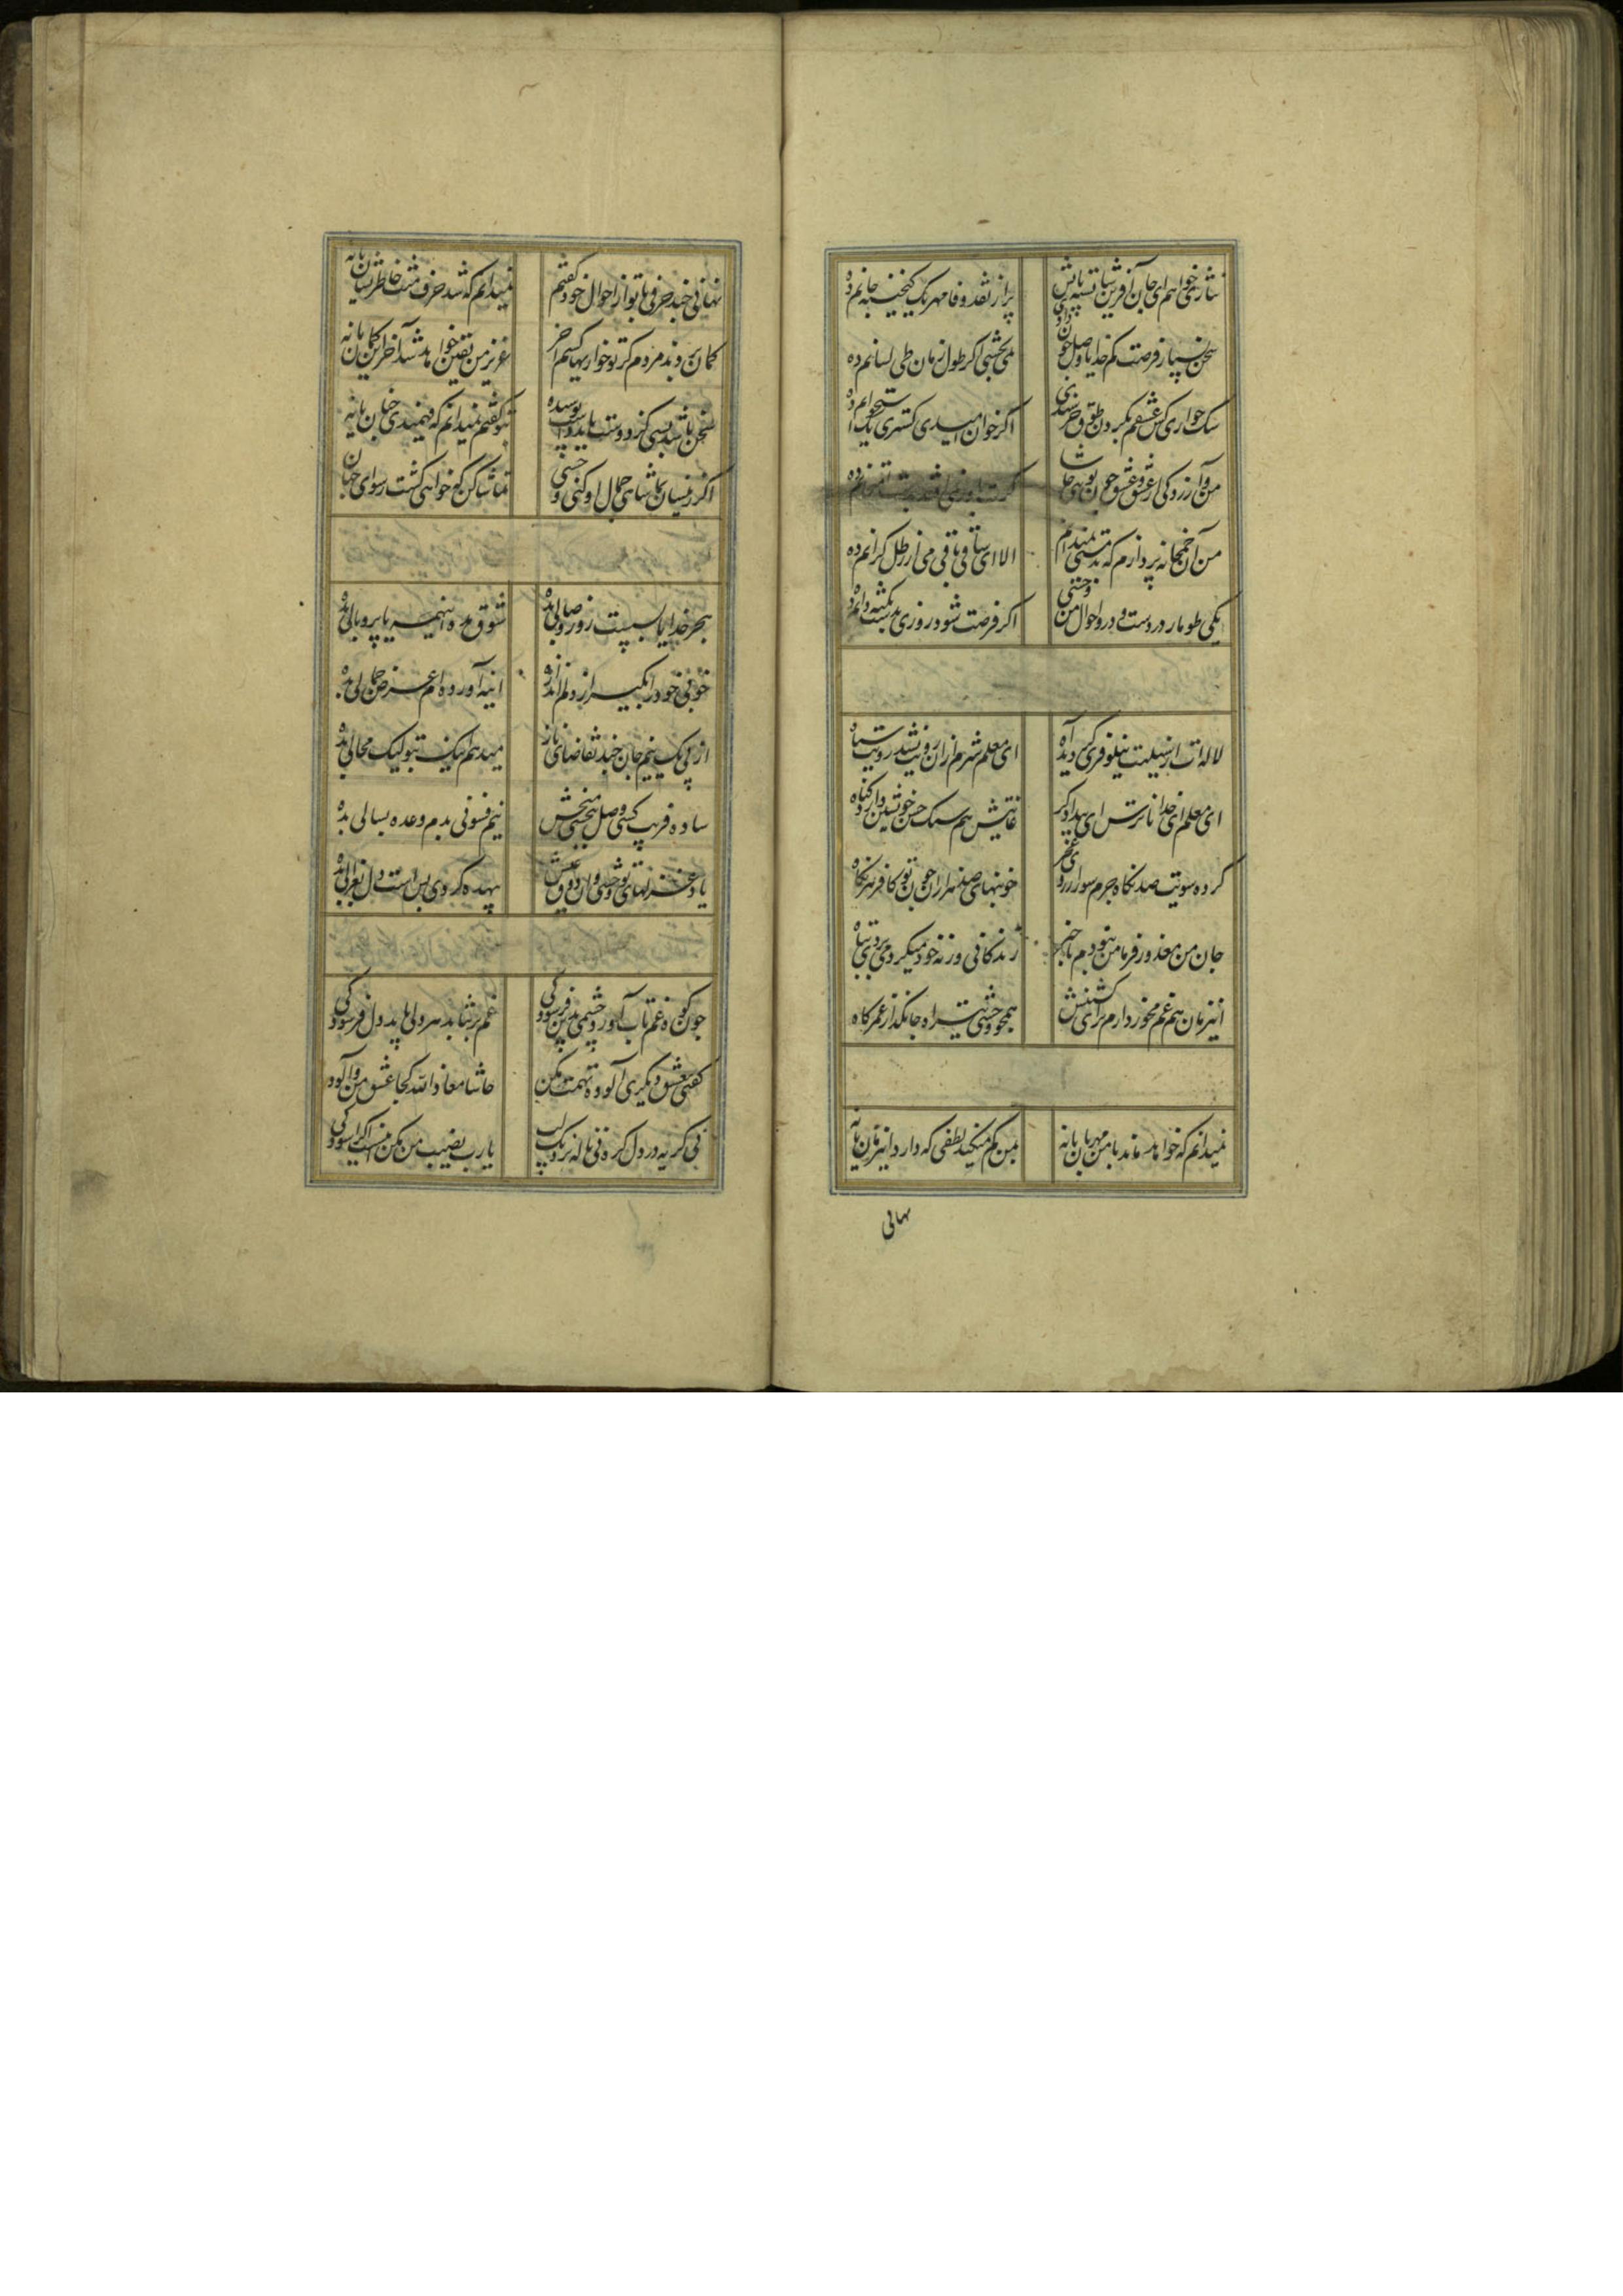 نثاری خواهم ای جان آفرین شایستهٔ پایش
پر از نقد وفا و مهر یک گنجینه جانم ده
سخن بسیار و فرصت کم خدایا وصل چون دادی
نمی‌بخشی اگر طول زمان طی لسانم ده
سگ خواری کش عشقم بگردن طوق خرسندی
اگر خوان امیدی گستری یک استخوانم ده
من و آزردگی از عشق و عشق چون تویی حاشا
گرت باور نمی‌افتد بدست امتحانم ده
من آن خمخانه پردازم که بدمستی نمیدانم
الا ای ساقی باقی می از رطل گرانم ده
یکی طومار در دست و در او احوال من وحشی
اگر فرصت شود روزی به دست
لاله‌ات از سیلیت نیلوفری گردیده آه
ای معلم شرم از آن رویت نشد رویت سیاه
ای معلم ای خدا ناترس ای بیدادگر
غایتش هم سنگ حسن خویشتن دارد گناه
کرده سویت صد نگاه جرم سوز ار روی عجز
خونبهای صد هزاران چون تو کافر هر نگاه
جان من معذور فرما من نبودم با خبر
زندگانی ورنه خود میکردمی بر وی تباه
اینزمان هم غم مخور دارم برای کشتنش
همچو وحشی تیر آه جانگداز عمر کاه
نمیدانم که خواهد ماند با من مهربان یا نه
بمن کم میکند لطفی که دارد اینزمان یا نه
نهانی
نهانی چند حرفی با تو از احوال خود گفتم
نمیدانم که شد حرف منت خاطر نشان یا نه
گمان بردند مردم کز تو خواریها کشم آخر
عزیز من یقین خواهد شد آخر این گمان یا نه
سخن باشد بسی کز دوست باید پوشیده
بتو گفتم نمیدانم که فهمیدی چنان یا نه
اگر زینسان تماشای جمال او کنی وحشی
تماشا کن که خواهی گشت رسوای جهان
هجر خدایا بس است زود وصالی بده
شوق مده اینهمه یا پر و بالی بده
خوبی خود را بگیر از دلم اندازه
آینه آورده‌ام عرض جمالی بده
از پی یک نیم جان چند تقاضای ناز
میدهم اینک بتو لیک مجالی بده
ساده فریب کسی وصل نبخشی مبخش
نیم فسونی بدم وعده بسالی بده
یاد غزلهای تو وحشی و این ذوق عشق
بیهده گردی بس است دل بغزالی بده
چون کوه غم تاب آورد جسمی بدین فرسودگی
غم بر نتابد هر دلی باید دل فرسودگی
گفتی بعشق دیگری آلوده تهمت مکن
حاشا معاذ الله کجا عشق من و آلودگی
نی گریه در دل گره نی ناله نزدیک لب
یا رب نصیب من مکن اینست اگر آسودگی